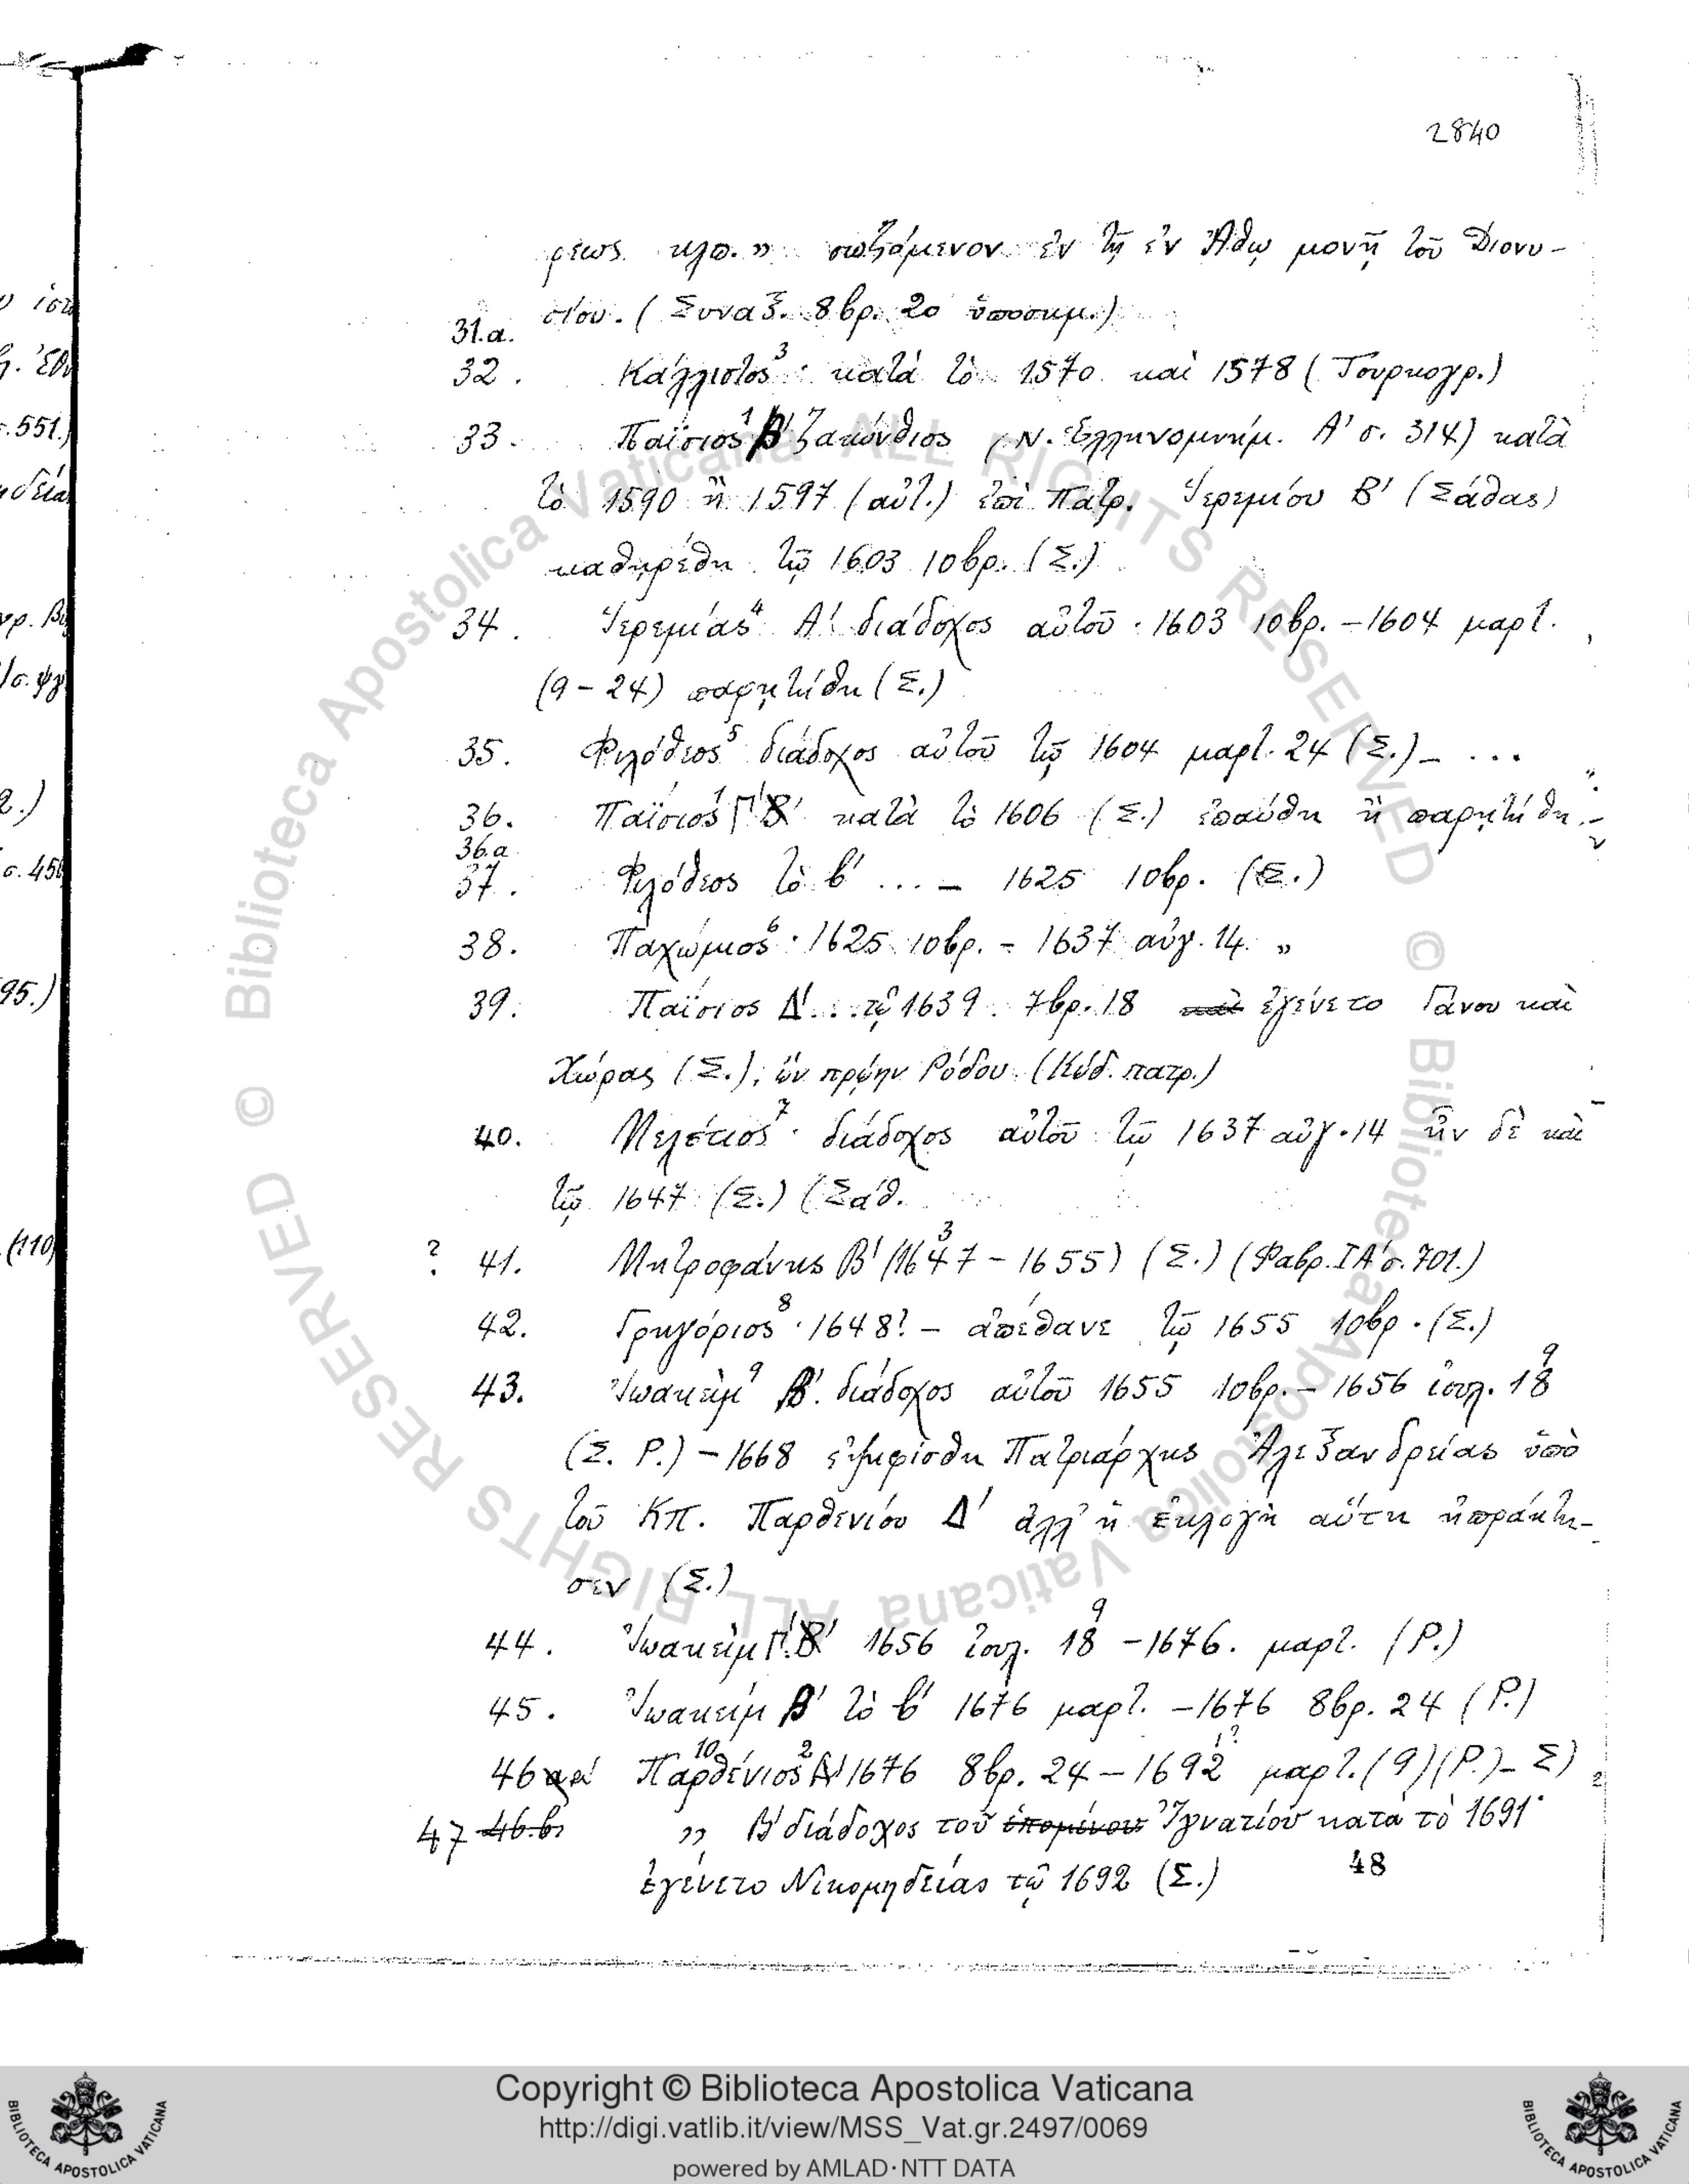 2840
ρεως κλπ.» σωζόμενον ἐν τῇ ἐν Ἄθῳ μονῇ τοῦ Διονυ-
σίου. (Συναξ. 8βρ. 20 ὑποσημ.)
31.α.
32. Κάλλιστος³· κατὰ τὸ 1570 καὶ 1578 (Τουρκογρ.)
33. Παΐσιος¹ Β' Ζακύνθιος (Ν. Ἑλληνομνήμ. Α' σ. 314) κατὰ
τὸ 1590 ἢ 1597 (αὐτ.) ἐπὶ Πατρ. Ἱερεμίου Β' (Σάθας)
καθῃρέθη τῷ 1603 10βρ. (Σ.)
34. Ἱερεμίας⁴ Α' διάδοχος αὐτοῦ· 1603 10βρ. – 1604 μαρτ.
(9 – 24) παρῃτήθη (Σ.)
35. Φιλόθεος⁵ διάδοχος αὐτοῦ τῷ 1604 μαρτ. 24 (Σ.) – ...
36. Παΐσιος¹ Γ' Β' κατὰ τὸ 1606 (Σ.) ἐπαύθη ἢ παρῃτήθη.
36.α
37. Φιλόθεος τὸ β' ... – 1625 10βρ. (Σ.)
38. Παχώμιος⁶· 1625 10βρ. – 1637 αὐγ. 14. »
39. Παΐσιος Δ'... τῷ 1639. 7βρ. 18 καὶ ἐγένετο Γάνου καὶ
Χώρας (Σ.), ὢν πρῴην Ρόδου (Κώδ. πατρ.)
40. Μελέτιος⁷· διάδοχος αὐτοῦ τῷ 1637 αὐγ. 14 ἦν δὲ καὶ
τῷ 1647 (Σ.) (Σάθ.
? 41. Μητροφάνης Β' (1647 – 1655) (Σ.) (Φαβρ. ΙΑ' σ. 701.)
3
42. Γρηγόριος⁸· 1648? – ἀπέθανε τῷ 1655 10βρ. (Σ.)
43. Ἰωακεὶμ⁹ Β'. διάδοχος αὐτοῦ 1655 10βρ. – 1656 ἰουλ. 18
9
(Σ. Ρ.) – 1668 ἐψηφίσθη Πατριάρχης Ἀλεξανδρείας ὑπὸ
τοῦ Κπ. Παρθενίου Δ' ἀλλ' ἡ ἐκλογὴ αὕτη ἠπράκτη-
σεν (Σ.)
44. Ἰωακεὶμ Γ'. Β' 1656 ἰουλ. 18 – 1676. μαρτ. (Ρ.)
9
45. Ἰωακεὶμ Β' τὸ β' 1676 μαρτ. – 1676 8βρ. 24 (Ρ.)
46 Παρθένιος Α' 1676 8βρ. 24 – 1692 μαρτ. (9) (Ρ.) – Σ)
10 2 1?
47 46.β. „ Β' διάδοχος τοῦ ἑπομένου Ἰγνατίου κατὰ τὸ 1691·
ἐγένετο Νικομηδείας τῷ 1692 (Σ.)
48
.551.)
2.)
σ. 456
95.)
(110)
© Biblioteca Apostolica Vaticana ALL RIGHTS RESERVED © Biblioteca Apostolica Vaticana ALL RIGHTS RESERVED
Copyright © Biblioteca Apostolica Vaticana
http://digi.vatlib.it/view/MSS_Vat.gr.2497/0069
powered by AMLAD·NTT DATA
BIBLIOTECA APOSTOLICA VATICANA
BIBLIOTECA APOSTOLICA VATICANA